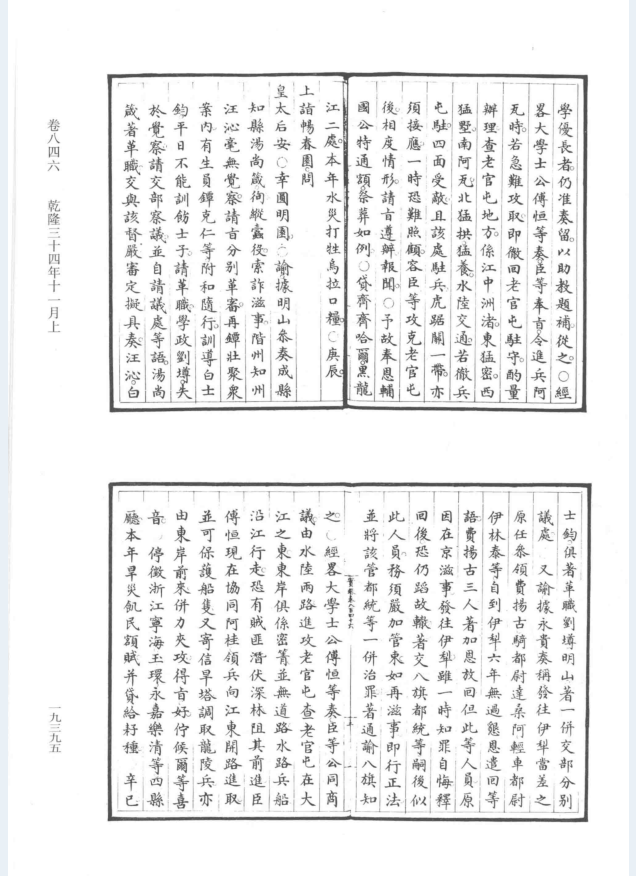 學優長者。仍准奏留。以助教題補。從之。○經
畧大學士公傅恒等奏。臣等奉旨。令進兵阿
瓦。時若急難攻取。即徹回老官屯駐守。酌量
辦理。查老官屯地方。係江中洲渚。東猛密。西
猛墅。南阿瓦。北猛拱猛養。水陸交通。若徹兵
屯駐。四面受敵。且該處駐兵虎踞關一帶。亦
須接應。一時恐難照顧。容臣等攻克老官屯
後。相度情形。請旨遵辦。報聞。○予故奉恩輔
國公特通額祭葬如例。○貸齊齊哈爾黑龍
江二處。本年水災打牲烏拉口糧。○庚辰。
上詣暢春園問
皇太后安。○幸圓明園。○諭據明山參奏成縣
知縣湯尚箴徇縱蠹役。索詐滋事。階州知州
汪沁毫無覺察。請旨分別革審。再鐔壯聚衆
案內。有生員鐔克仁等附和隨行。訓導白士
鈞平日不能訓飭士子。請革職。學政劉墫失
於覺察。請交部察議。並自請議處等語。湯尚
箴著革職。交與該督嚴審定擬具奏。汪沁。白
士鈞俱著革職。劉墫明山著一併交部分別
議處。 又諭據永貴奏稱發往伊犁當差之
原任參領費揚古騎都尉達桑阿輕車都尉
伊林泰等自到伊犁六年無過懇恩遣回等
語費揚古三人著加恩放回但此等人員原
因在京滋事發往伊犁雖一時知罪自悔釋
回後恐仍蹈故轍著交八旗都統等嗣後似
此人員務須嚴加管束如再滋事即行正法
並將該管都統等一併治罪著通諭八旗知
實錄卷八百四十六
之。○經畧大學士公傅恒等奏臣等公同商
議由水陸兩路進攻老官屯查老官屯在大
江之東東岸俱係密菁並無道路水路兵船
沿江行走恐有賊匪潛伏深林阻其前進臣
傅恒現在協同阿桂領兵向江東開路進取
並可保護船隻又寄信早塔調取龍陵兵亦
由東岸前來併力夾攻得旨好佇候爾等喜
音 停徵浙江寧海玉環永嘉樂清等四縣
廳本年旱災飢民額賦并貸給籽種 辛巳
卷八四六 乾隆三十四年十一月上
一九三九五